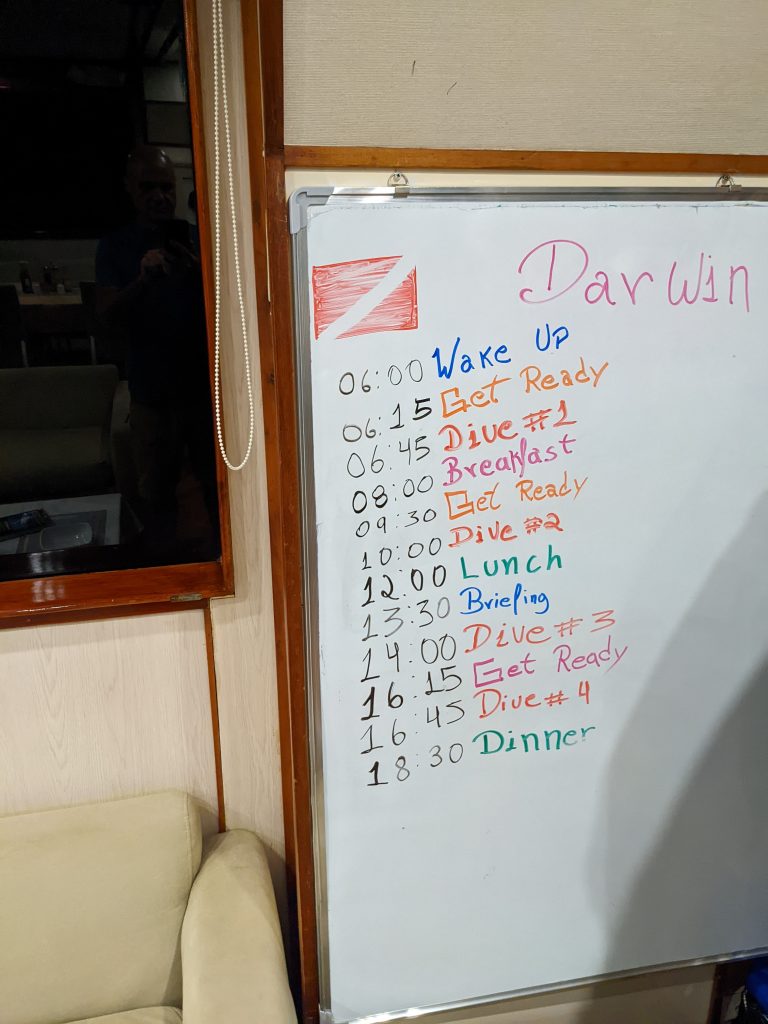 Darwin
06:00 Wake Up
06:15 Get Ready
06:45 Dive #1
08:00 Breakfast
09:30 Get Ready
10:00 Dive #2
12:00 Lunch
13:30 Briefing
14:00 Dive #3
16:15 Get Ready
16:45 Dive #4
18:30 Dinner